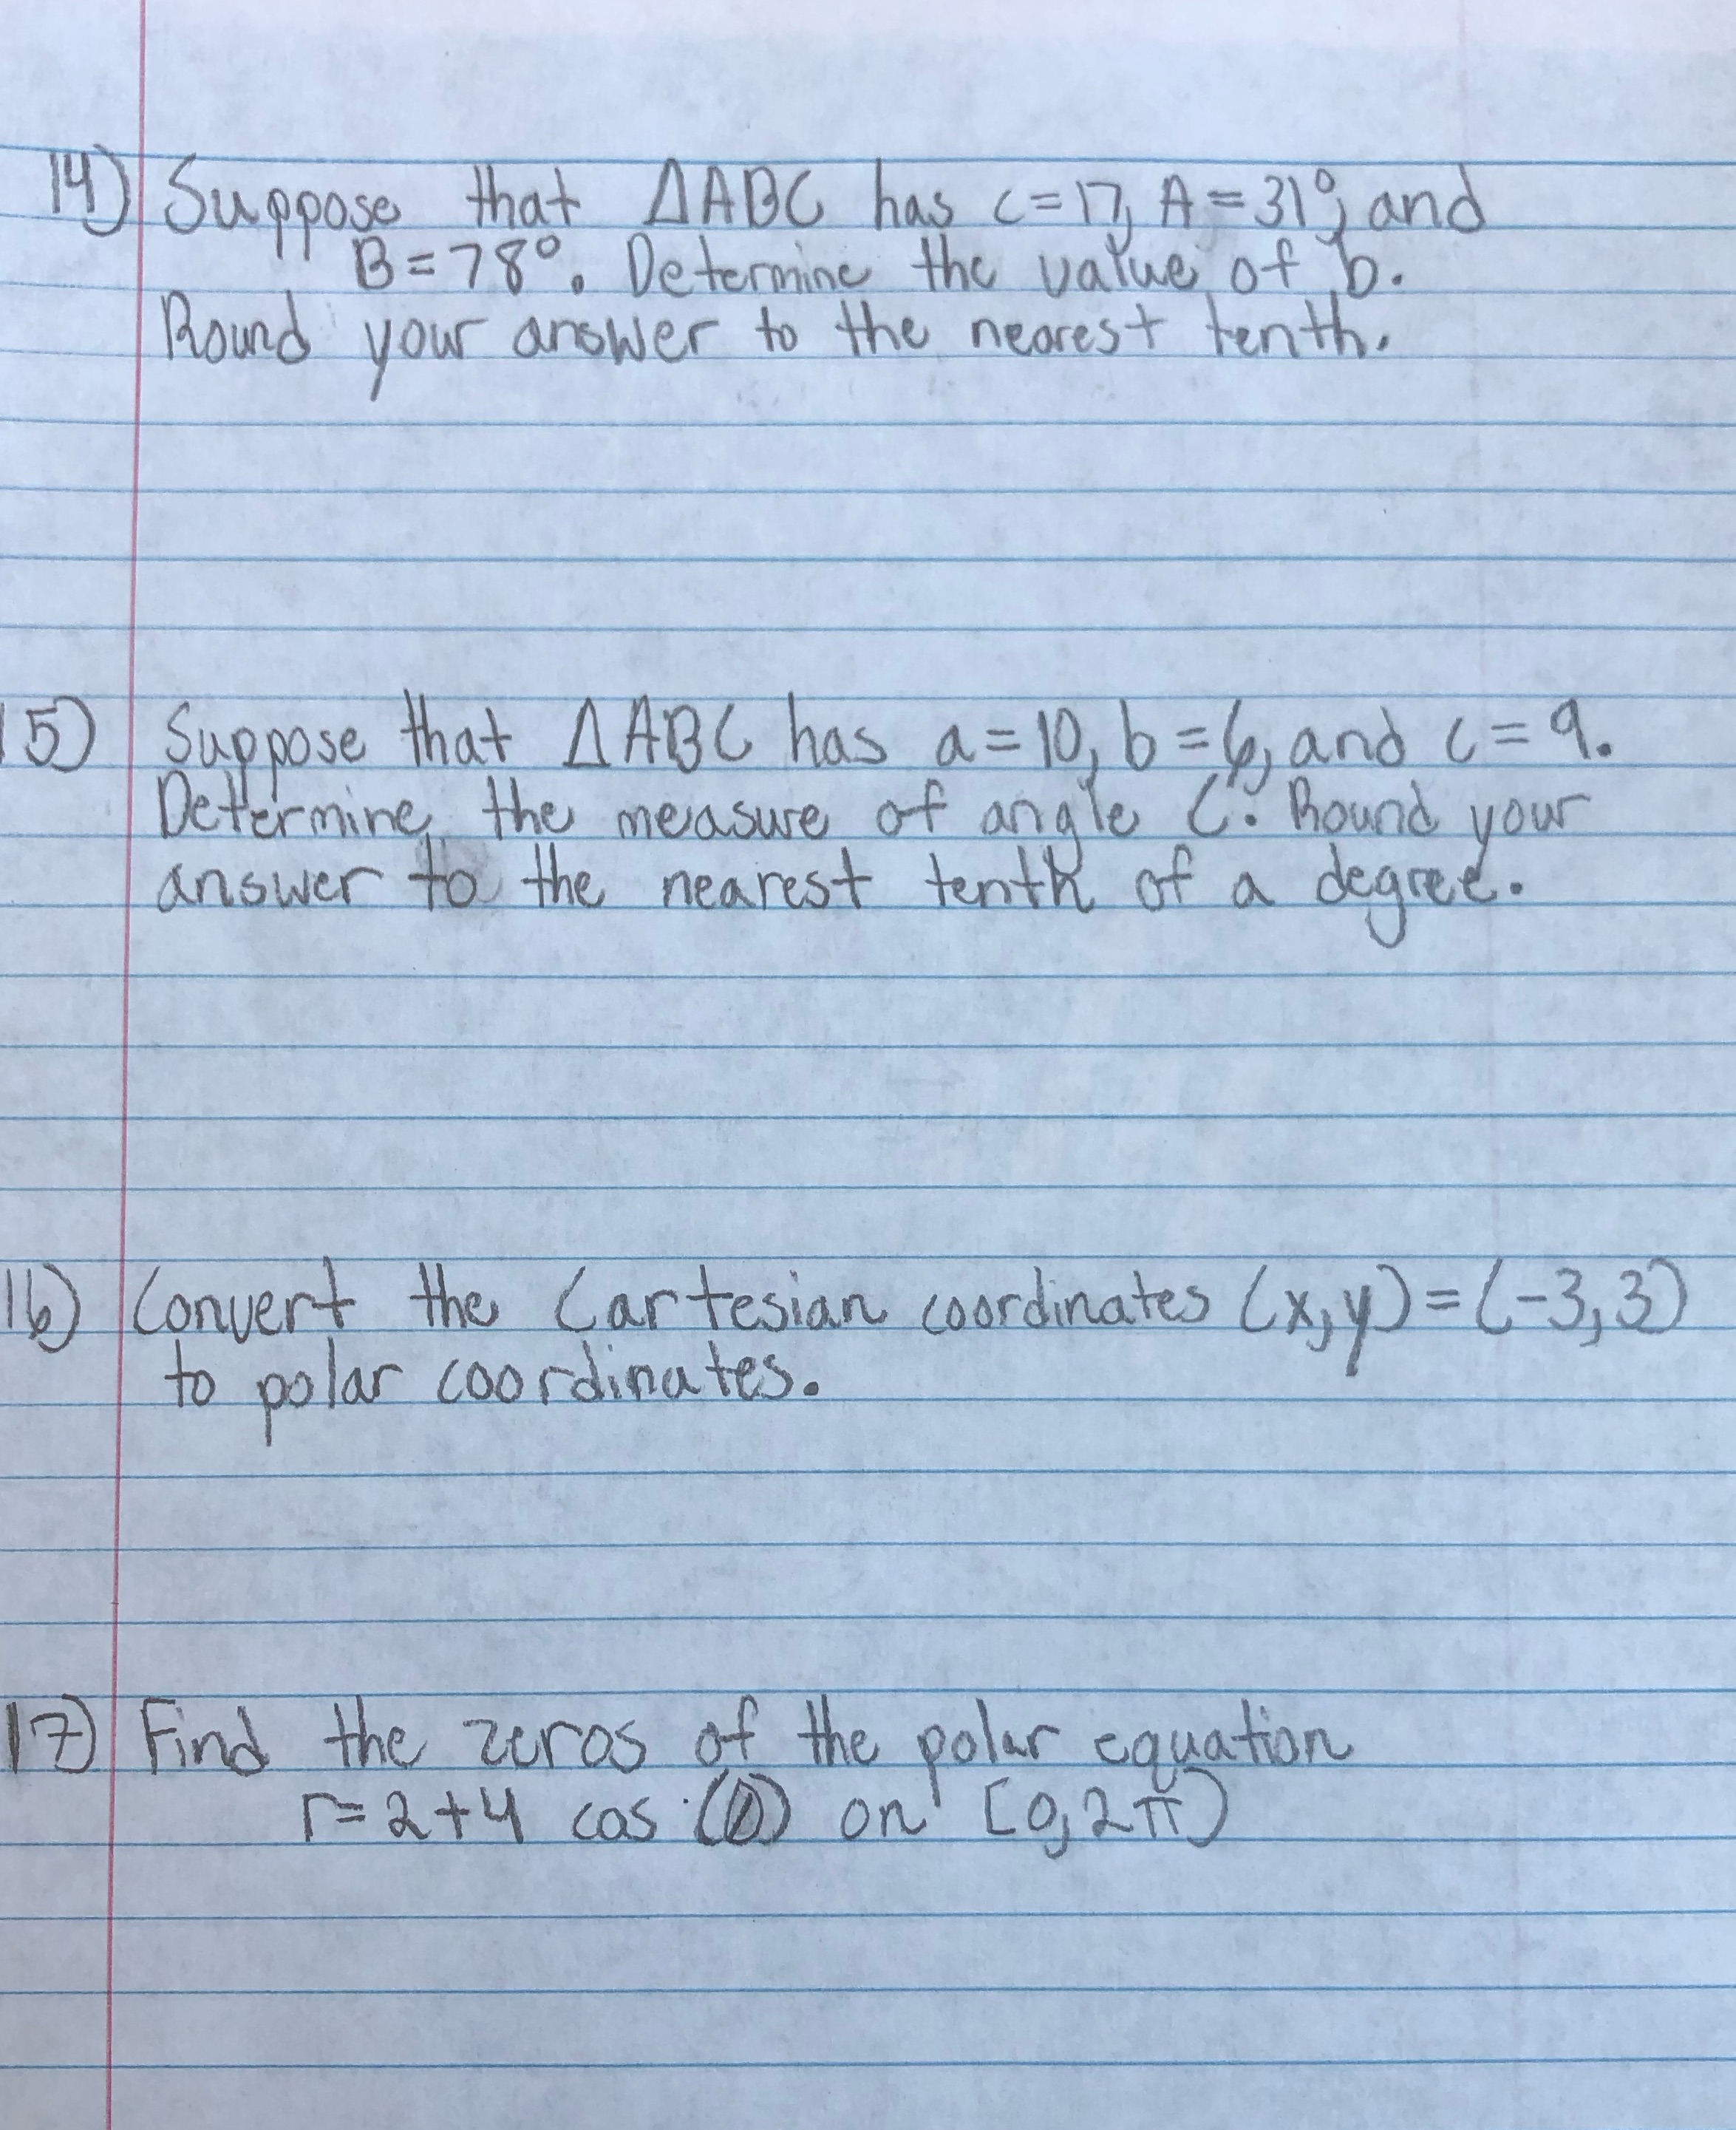 14) Suppose that △ABC has c=17, A=31°, and
B=78°. Determine the value of b.
Round your answer to the nearest tenth.
15) Suppose that △ABC has a=10, b=6, and c=9.
Determine the measure of angle C. Round your
answer to the nearest tenth of a degree.
16) Convert the Cartesian coordinates (x,y)=(-3,3)
to polar coordinates.
17) Find the zeros of the polar equation
r=2+4 cos (θ) on [0,2π)